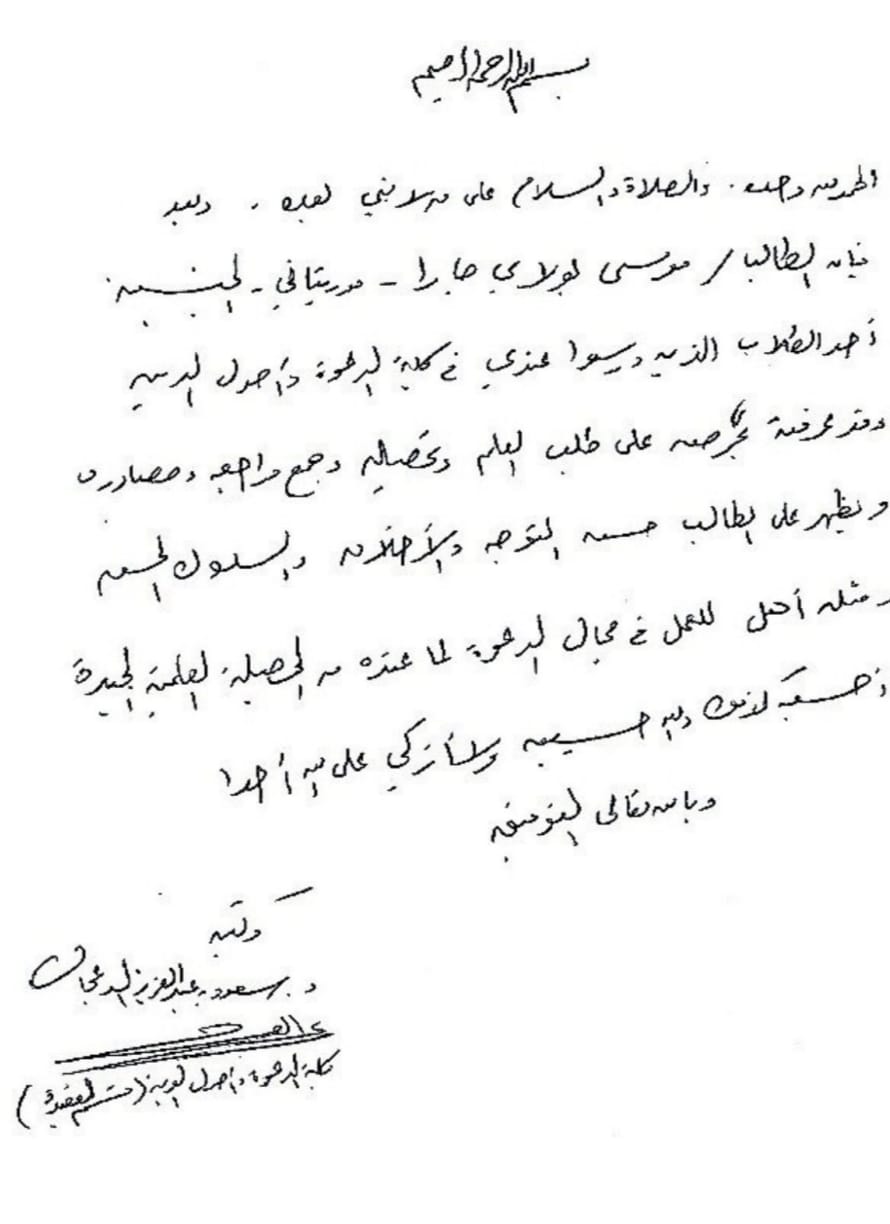 بسم الله الرحمن الرحيم
الحمد لله وحده. والصلاة والسلام على من لا نبي بعده. وبعد
فإن الطالب / موسى بولاي جابرا - موريتاني - الجنسية
أحد الطلاب الذين درسوا عندي في كلية الدعوة وأصول الدين
وقد عرفته بحرصه على طلب العلم وتحصيله وجمع مراجعه ومصادره
ويظهر على الطالب حسن التوجه والأخلاق والسلوك الحسن
ومثله أهل للعمل في مجال الدعوة لما عنده من الحصيلة العلمية الجيدة
أحسبه كذلك والله حسيبه ولا أزكي على الله أحدا
وبالله تعالى التوفيق
وكتبه
د. سعود بن عبد العزيز الدعجان
كلية الدعوة وأصول الدين (قسم العقيدة)